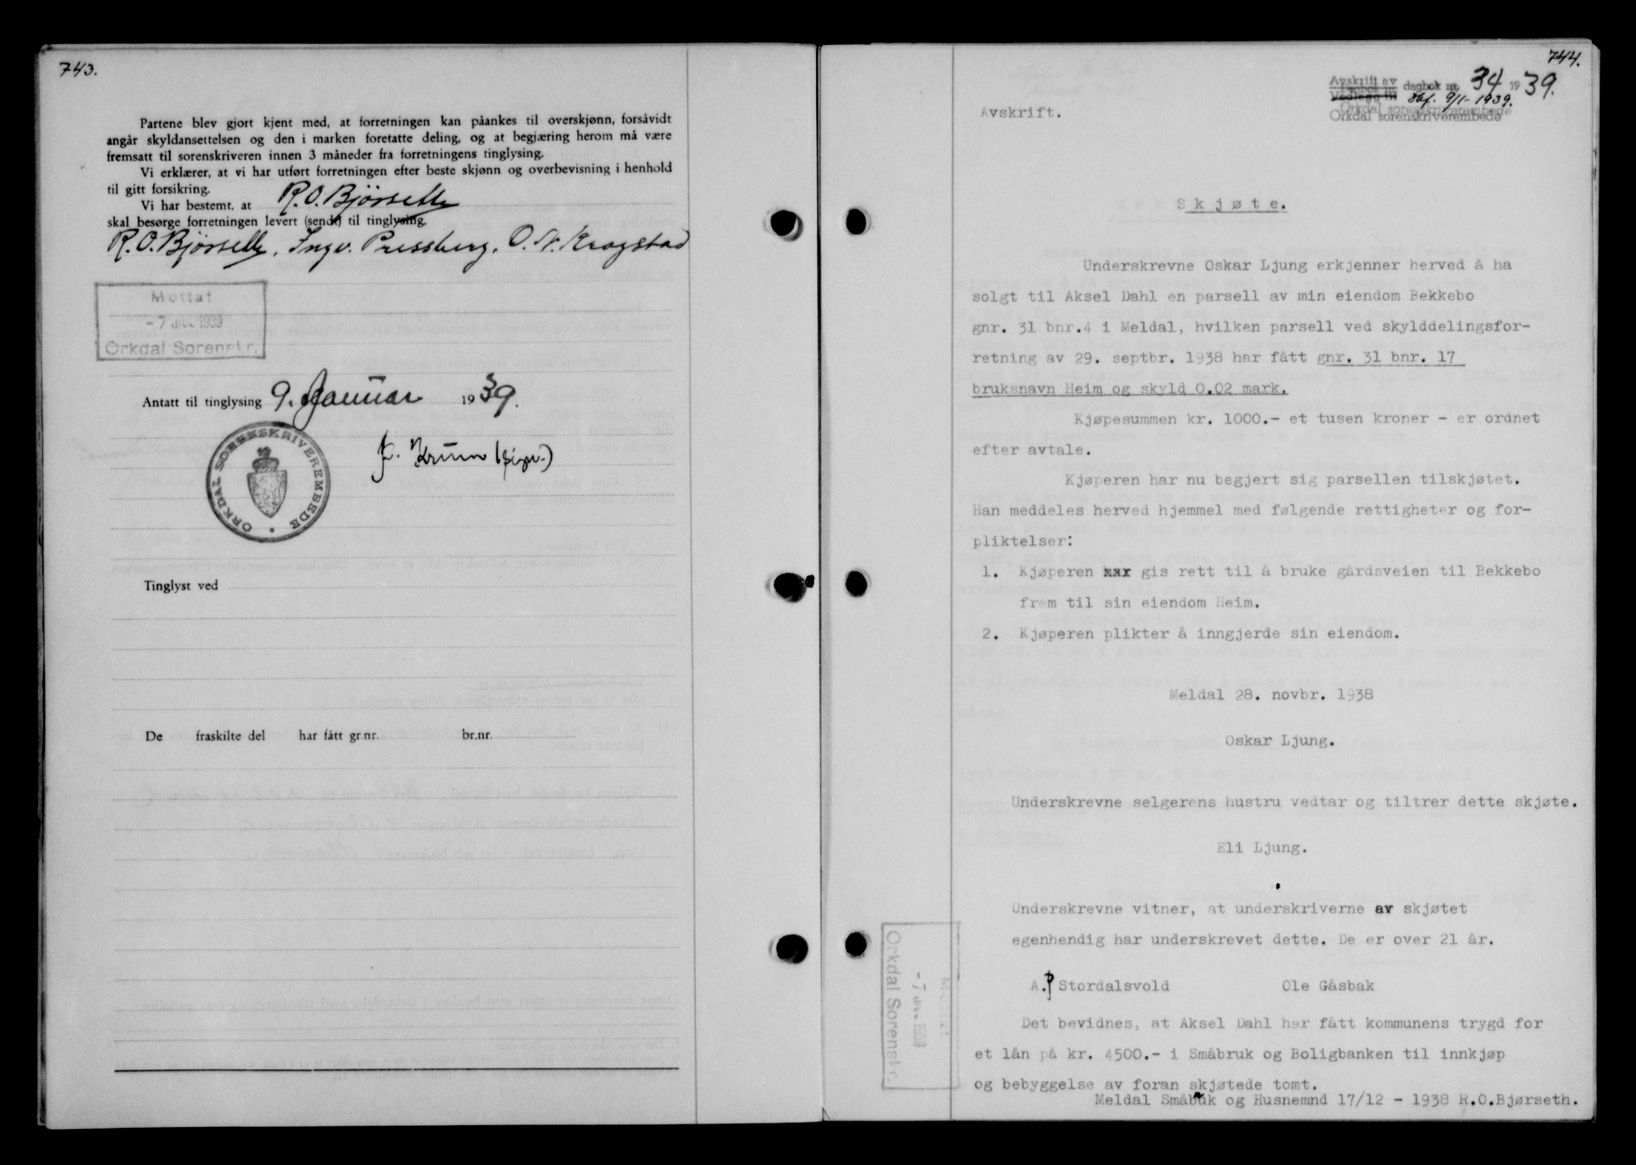 743.
Partene blev gjort kjent med, at forretningen kan påankes til overskjønn, forsåvidt
angår skyldansettelsen og den i marken foretatte deling, og at begjæring herom må være
fremsatt til sorenskriveren innen 3 måneder fra forretningens tinglysing.
Vi erklærer, at vi har utført forretningen efter beste skjønn og overbevisning i henhold
til gitt forsikring.
Vi har bestemt, at R.O.Bjørseth
skal besørge forretningen levert (sendt) til tinglysing.
R.O.Bjørseth, Ingv. Pressberg, O. N. Krogstad
Mottat
- 7 JAN. 1939
Orkdal Sorenskr.
Antatt til tinglysing 9. Januar 1939.
ORKDAL SORENSKRIVEREMBEDE
(sign.)
Tinglyst ved
De fraskilte del har fått gr.nr. br.nr.
744.
Avskrift av dagbok nr. 34 1939.
Vedlegg til dbf. 9/1-1939.
Orkdal sorenskriverembede
Avskrift.
Skjøte.
Underskrevne Oskar Ljung erkjenner herved å ha
solgt til Aksel Dahl en parsell av min eiendom Bekkebo
gnr. 31 bnr.4 i Meldal, hvilken parsell ved skylddelingsfor-
retning av 29. septbr. 1938 har fått gnr. 31 bnr. 17
bruksnavn Heim og skyld 0.02 mark.
Kjøpesummen kr. 1000.- et tusen kroner - er ordnet
efter avtale.
Kjøperen har nu begjert sig parsellen tilskjøtet.
Han meddeles herved hjemmel med følgende rettigheter og for-
pliktelser:
1. Kjøperen gis rett til å bruke gårdsveien til Bekkebo
frem til sin eiendom Heim.
2. Kjøperen plikter å inngjerde sin eiendom.
Meldal 28. novbr. 1938
Oskar Ljung.
Underskrevne selgerens hustru vedtar og tiltrer dette skjøte.
Eli Ljung.
Underskrevne vitner, at underskriverne av skjøtet
egenhendig har underskrevet dette. De er over 21 år.
A.P Stordalsvold Ole Gåsbak
Mottat
- 7 JAN. 1939
Orkdal Sorenskr.
Det bevidnes, at Aksel Dahl har fått kommunens trygd for
et lån på kr. 4500.- i Småbruk og Boligbanken til innkjøp
og bebyggelse av foran skjøtede tomt.
Meldal Småbruk og Husnemnd 17/12 - 1938 R.O.Bjørseth.